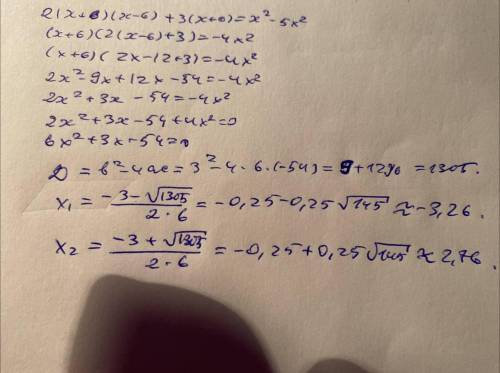 2(x+6)(x-6)+3(x+6)=x²-5x²
(x+6)(2(x-6)+3)=-4x²
(x+6)(2x-12+3)=-4x²
2x²-9x+12x-54=-4x²
2x²+3x-54=-4x²
2x²+3x-54+4x²=0
6x²+3x-54=0
D=b²-4ac=3²-4·6·(-54)=9+1296=1305.
x₁=(-3-√1305)/(2·6)=-0,25-0,25√145≈-3,26.
x₂=(-3+√1305)/(2·6)=-0,25+0,25√145≈2,76.